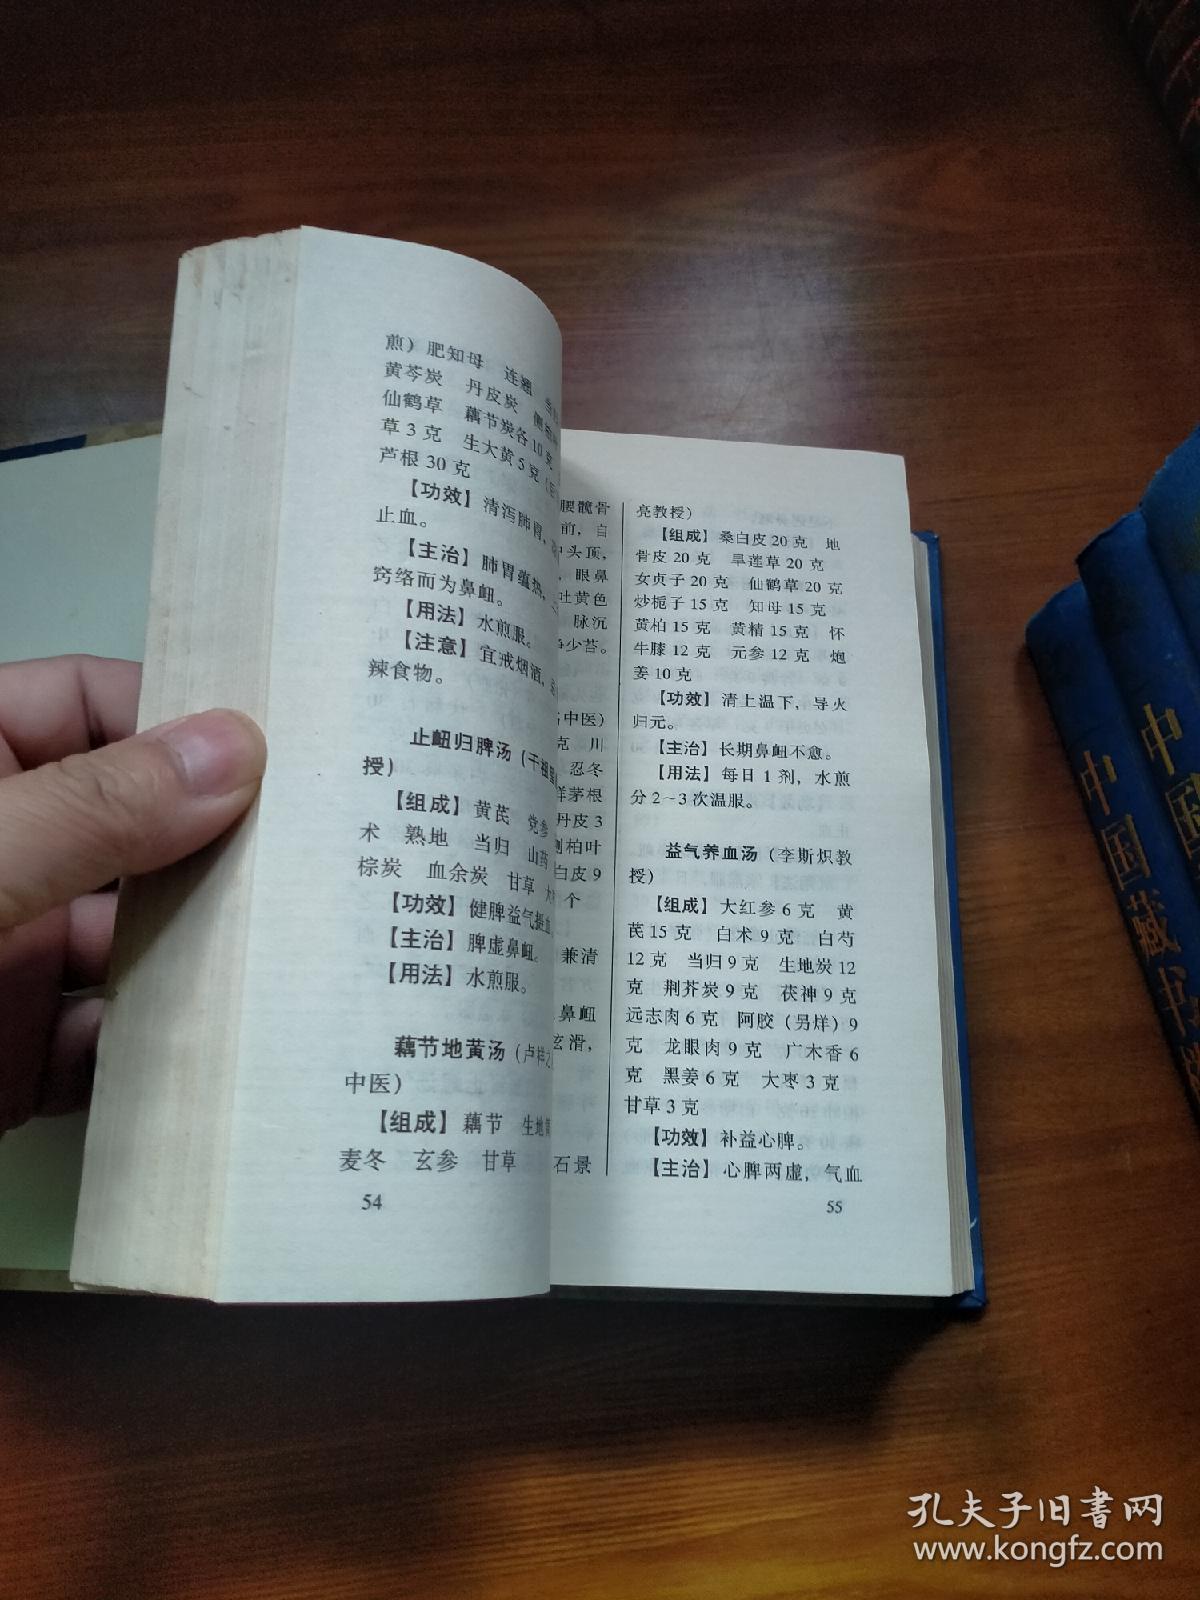 煎）肥知母 连翘
黄芩炭 丹皮炭
仙鹤草 藕节炭各10克
草3克 生大黄5克
芦根30克
【功效】清泻肺胃，
止血。
【主治】肺胃蕴热，
窍络而为鼻衄。
【用法】水煎服。
【注意】宜戒烟酒，
辣食物。
止衄归脾汤（干祖望
授）
【组成】黄芪 党参
术 熟地 当归 山药
棕炭 血余炭 甘草
【功效】健脾益气摄血
【主治】脾虚鼻衄。
【用法】水煎服。
藕节地黄汤（卢祥之
中医）
【组成】藕节 生地黄
麦冬 玄参 甘草
54
腰髋骨
前，自
头顶，
，眼鼻
吐黄色
脉沉
少苔。
中医）
克 川
忍冬
茅根
丹皮3
侧柏叶
白皮9
个
兼清
鼻衄
玄滑，
石景
亮教授）
【组成】桑白皮20克 地
骨皮20克 旱莲草20克
女贞子20克 仙鹤草20克
炒栀子15克 知母15克
黄柏15克 黄精15克 怀
牛膝12克 元参12克 炮
姜10克
【功效】清上温下，导火
归元。
【主治】长期鼻衄不愈。
【用法】每日1剂，水煎
分2～3次温服。
益气养血汤（李斯炽教
授）
【组成】大红参6克 黄
芪15克 白术9克 白芍
12克 当归9克 生地炭12
克 荆芥炭9克 茯神9克
远志肉6克 阿胶（另烊）9
克 龙眼肉9克 广木香6
克 黑姜6克 大枣3克
甘草3克
【功效】补益心脾。
【主治】心脾两虚，气血
55
中国藏书
中国
孔夫子旧书网
www.kongfz.com